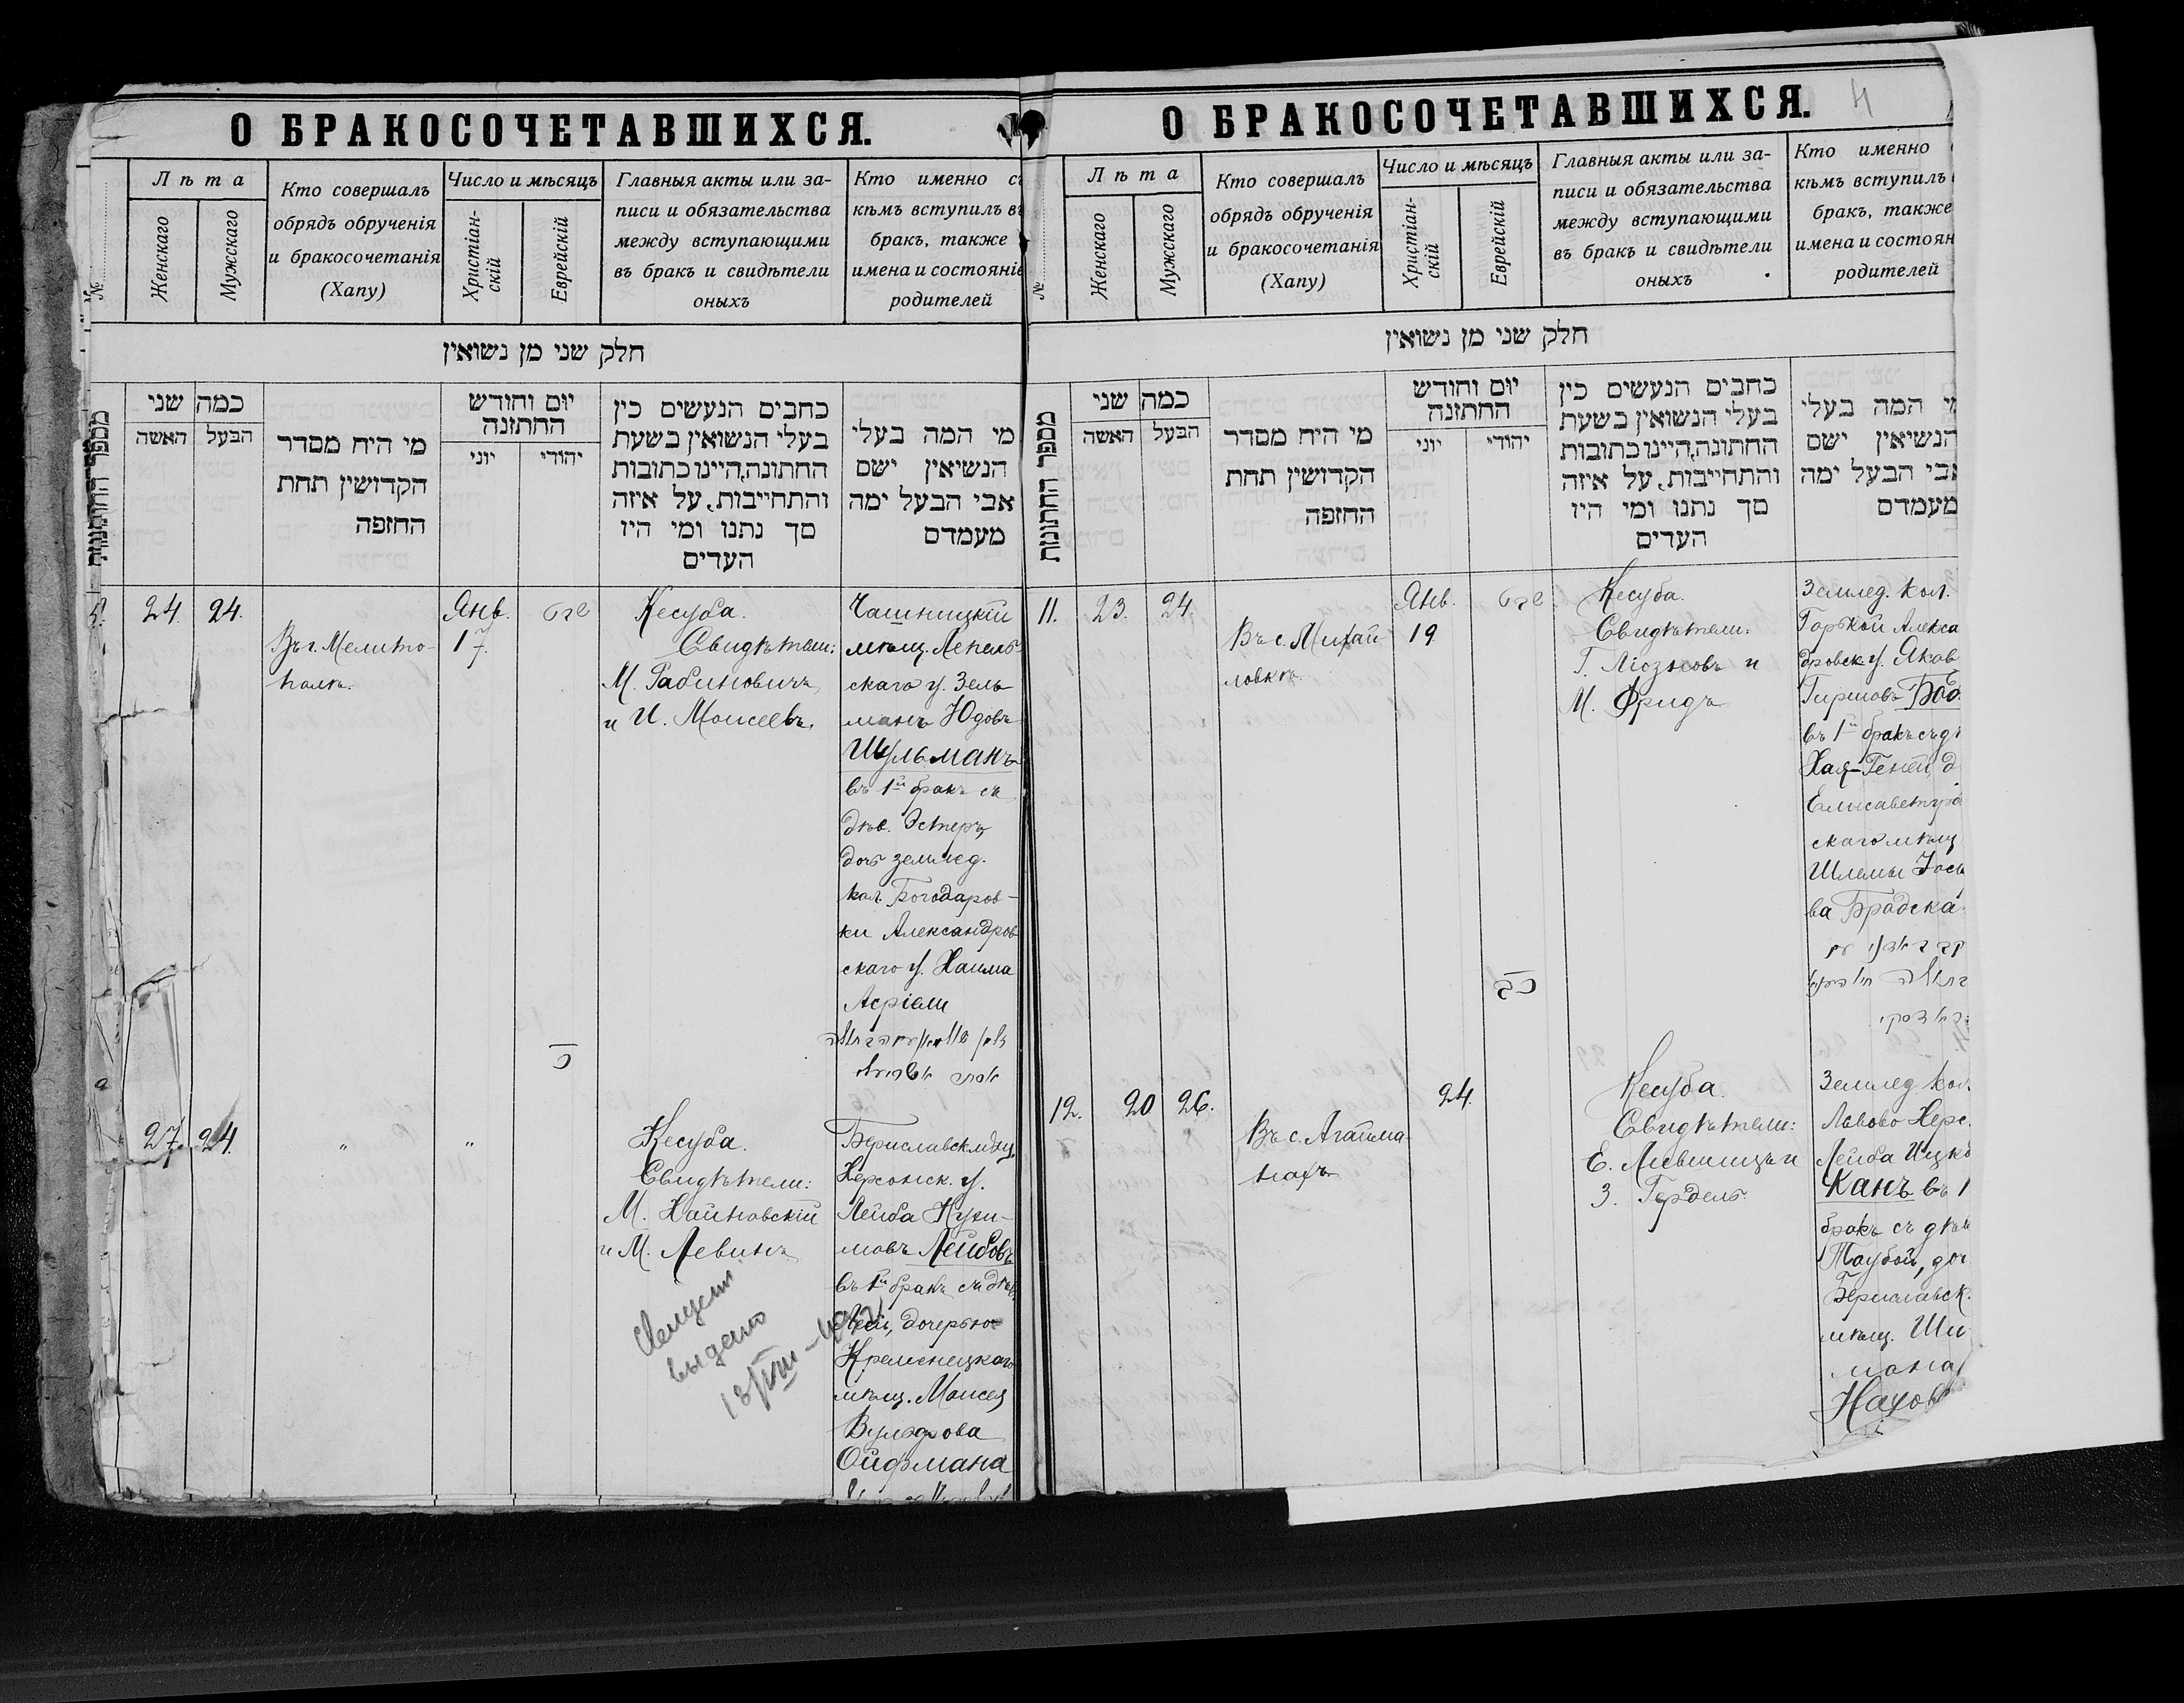 О БРАКОСОЧЕТАВШИХСЯ.
№
Лѣта
Женскаго
Мужскаго
Кто совершалъ
обрядъ обрученія
и бракосочетанія
(Хапу)
Число и мѣсяцъ
Христіан-
скій
Еврейскій
Главныя акты или за-
писи и обязательства
между вступающими
въ бракъ и свидѣтели
оныхъ
Кто именно съ
кѣмъ вступилъ въ
бракъ, также
имена и состояніе
родителей
חלק שני מן נשואין
מספר החתונות
כמה שני
האשה
הבעל
מי היח מסדר
הקדושין תחת
החופה
יום וחודש
החתונה
יוני
יהודי
כחבים הנעשים כין
בעלי הנשואין בשעת
החתונה, היינו כתובות
והתחייבות, על איזה
סך נתנו ומי היו
העדים
מי המה בעלי
הנשיאין ישם
אבי הבעל ימה
מעמדם
24. 24.
Въ г. Мелито-
полѣ.
Янв.
17.
שבט
Кесуба.
Свидѣтели:
М. Рабиновичъ
и И. Моисеевъ.
Чашницкій
мѣщ. Лепель-
скаго у. Зель
манъ Юдовъ
Шульманъ
въ 1й бракъ съ
дѣв. Эстеръ,
дочь землед.
кол. Богодаров-
ки Александров
скаго у. Хаима
Асріели
27. 24.
"
"
Кесуба.
Свидѣтели:
М. Хайновскій
и М. Левинъ
выдано
18/VIII
Бериславск. мѣщ.
Херсонск. у.
Лейба
мовъ Лейбовъ
въ 1й бракъ съ дѣв.
дочерью
Кременецкаго
мѣщ. Моисея
Вульфова
Ойфмана
О БРАКОСОЧЕТАВШИХСЯ.
4
№
Лѣта
Женскаго
Мужскаго
Кто совершалъ
обрядъ обрученія
и бракосочетанія
(Хапу)
Число и мѣсяцъ
Христіан-
скій
Еврейскій
Главныя акты или за-
писи и обязательства
между вступающими
въ бракъ и свидѣтели
оныхъ
Кто именно
кѣмъ вступилъ
бракъ, также
имена и состоян
родителей
חלק שני מן נשואין
מספר החתונות
כמה שני
האשה
הבעל
מי היח מסדר
הקדושין תחת
החופה
יום וחודש
החתונה
יוני
יהודי
כחבים הנעשים כין
בעלי הנשואין בשעת
החתונה, היינו כתובות
והתחייבות, על איזה
סך נתנו ומי היו
העדים
מי המה בעלי
הנשיאין ישם
אבי הבעל ימה
מעמדם
11. 23. 24.
Въ с. Михай-
ловкѣ.
Янв.
19
שבט
Кесуба.
Свидѣтели:
Г. Ліозновъ и
М. Фридъ
Землед. кол.
Горькой Алекса
дровск. у. Яков
Гиршовъ
въ 1й бракъ съ дѣ
Хая-Геней, д
Елисаветгра
скаго мѣщ
Шлемы Іось
ва Брадска
12. 20 26.
Въ с. Агайма-
нахъ.
24.
Кесуба.
Свидѣтели:
Е. Лившицъ и
З. Гордель.
Землед. кол.
Львово Херс.
Лейба Ицко
Канъ въ 1
бракъ съ дѣв
Таубой, доч
Бериславск.
мѣщ. Ши
мона
Нахов